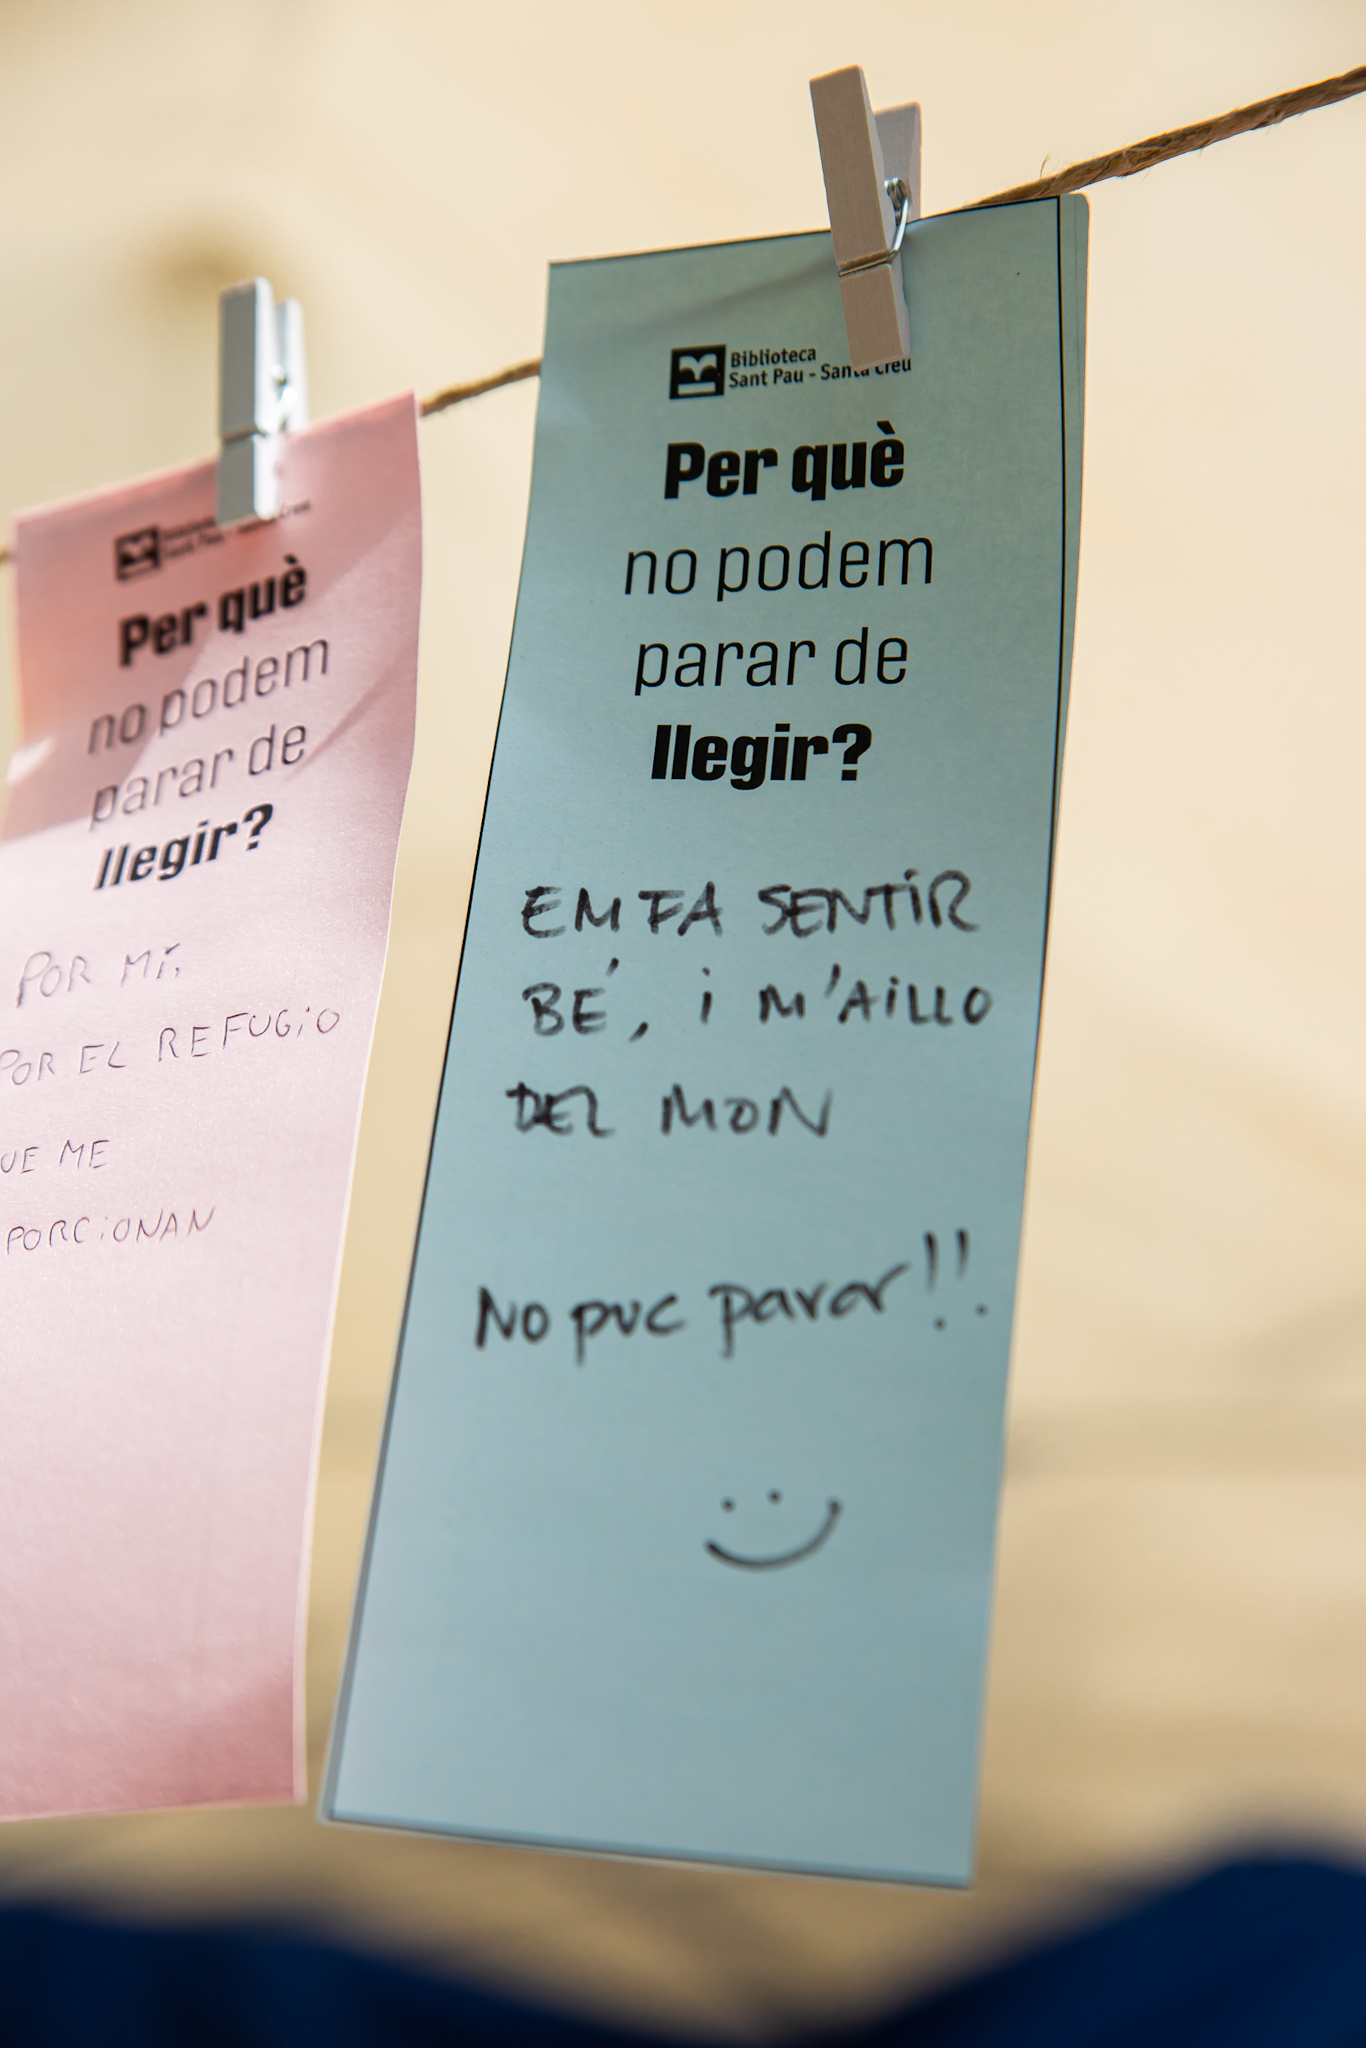 Biblioteca
Sant Pau - Santa Creu
Per què
no podem
parar de
llegir?
EM FA SENTIR
BÉ, i M'AiLLO
DEL MON
No puc parar!!
Per què
no podem
parar de
llegir?
POR Mí,
POR EL REFUGiO
ME